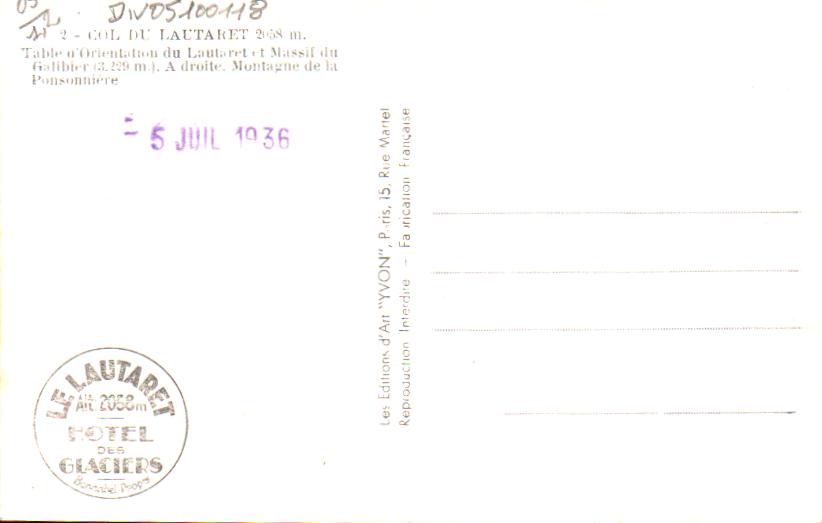 05
DIV05100118
2 - COL DU LAUTARET 2058 m.
Table d'Orientation du Lautaret et Massif du
Galibier (3.229 m.). A droite. Montagne de la
Ponsonnière
- 5 JUIL 1936
Les Editions d'Art "YVON", Paris, 15, Rue Martel
Reproduction Interdite - Fabrication Française
LE LAUTARET
Alt. 2058m
HOTEL
DES
GLACIERS
Bonnabel-Propre